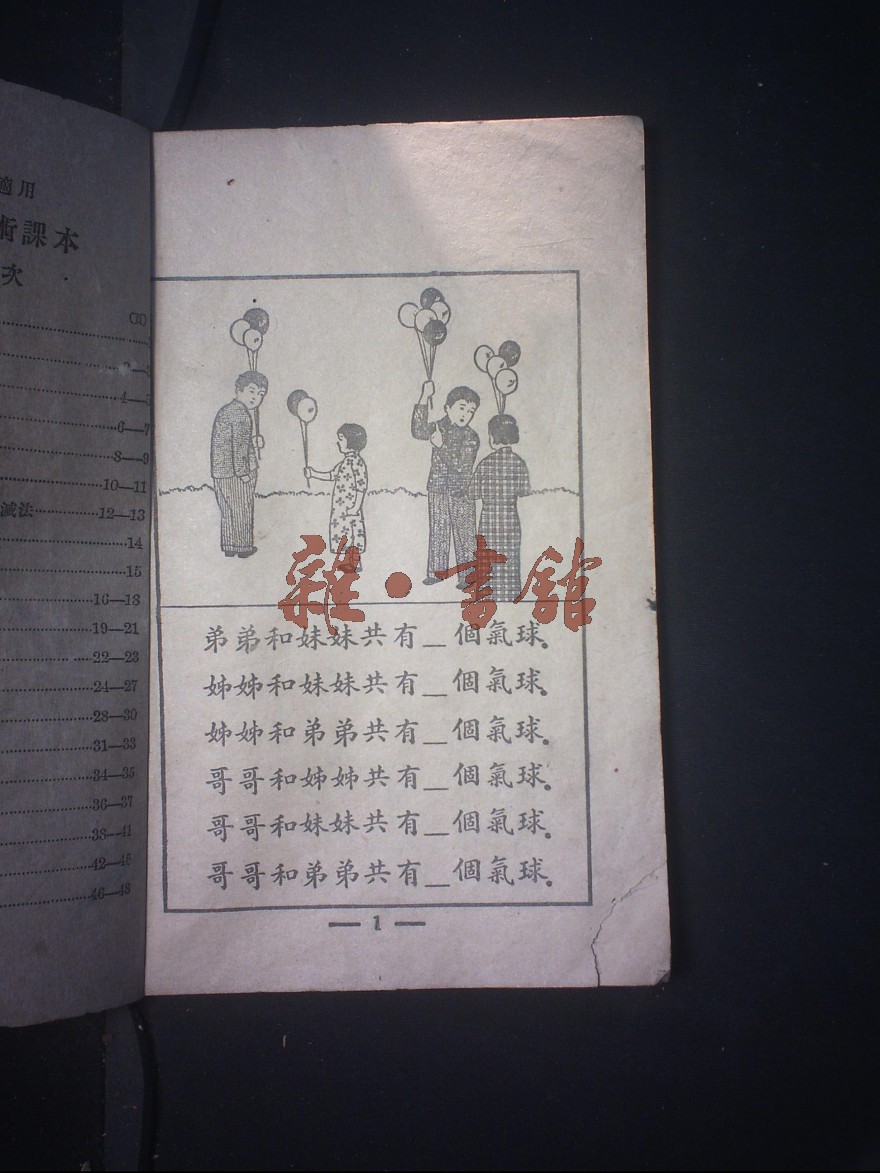 適用
術課本
次
(頁)
4—5
6—7
8—9
10—11
減法 12—13
14
15
16—18
19—21
22—23
24—27
28—30
31—33
34—35
36—37
38—41
42—45
46—48
雜·書館
弟弟和妹妹共有__個氣球。
姊姊和妹妹共有__個氣球。
姊姊和弟弟共有__個氣球。
哥哥和姊姊共有__個氣球。
哥哥和妹妹共有__個氣球。
哥哥和弟弟共有__個氣球。
— 1 —